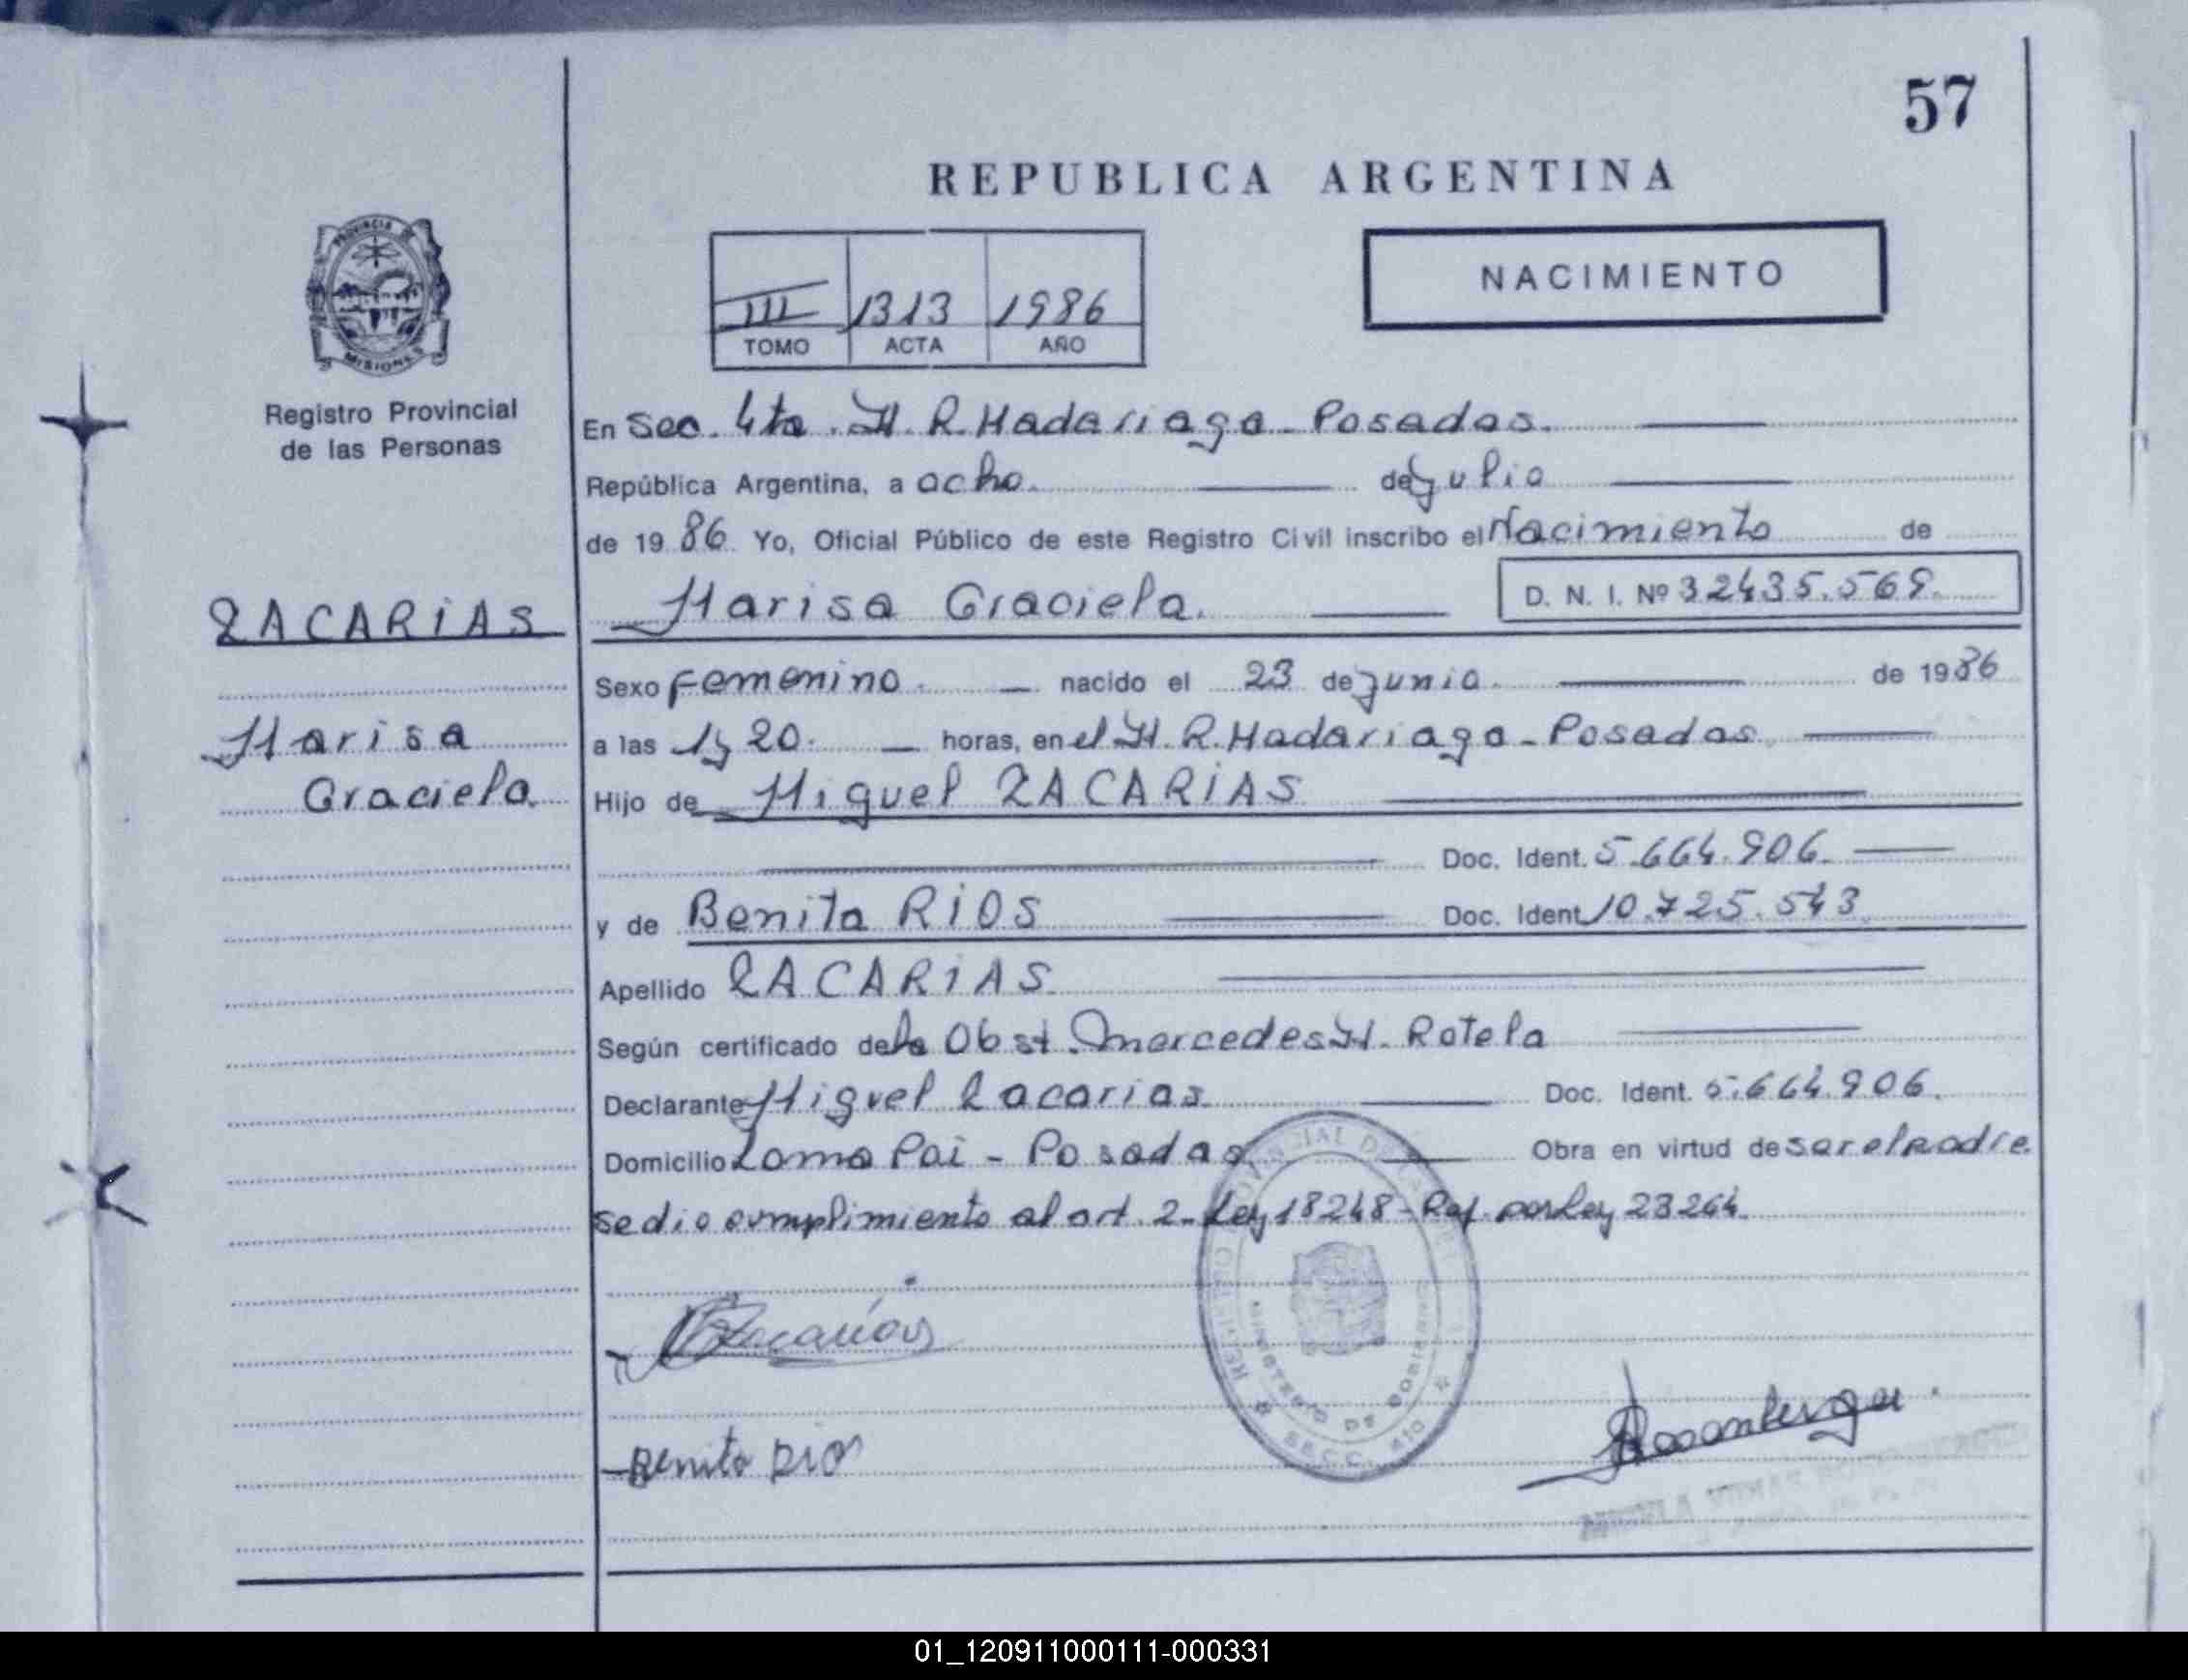 57
REPUBLICA ARGENTINA
PROVINCIA DE
MISIONES
III 1313 1986
TOMO ACTA AÑO
NACIMIENTO
Registro Provincial
de las Personas
En Sec. 4ta. H. R. Madariaga - Posadas.
República Argentina, a ocho. de julio
de 1986 Yo, Oficial Público de este Registro Civil inscribo el Nacimiento de
ZACARIAS
Marisa Graciela. D. N. I. Nº 32435.569.
Sexo Femenino. nacido el 23 de junio. de 1986
Marisa
a las 1y 20. horas, en el H. R. Madariaga - Posadas.
Graciela.
Hijo de Miguel ZACARIAS
Doc. Ident. 5.664.906.
y de Benita RIOS Doc. Ident. 10.725.543
Apellido ZACARIAS
Según certificado de la Obst. Mercedes H. Rotela
Declarante Miguel Zacarias Doc. Ident. 5.664.906.
Domicilio Loma Pai - Posadas Obra en virtud de ser el padre.
se dio cumplimiento al art. 2- Ley 18248 - Ref. por Ley 23264
Zacarías
Benita Rios
REGISTRO PROVINCIAL DE LAS
MINISTERIO DE GOBIERNO
SECC. 410
01_120911000111-000331